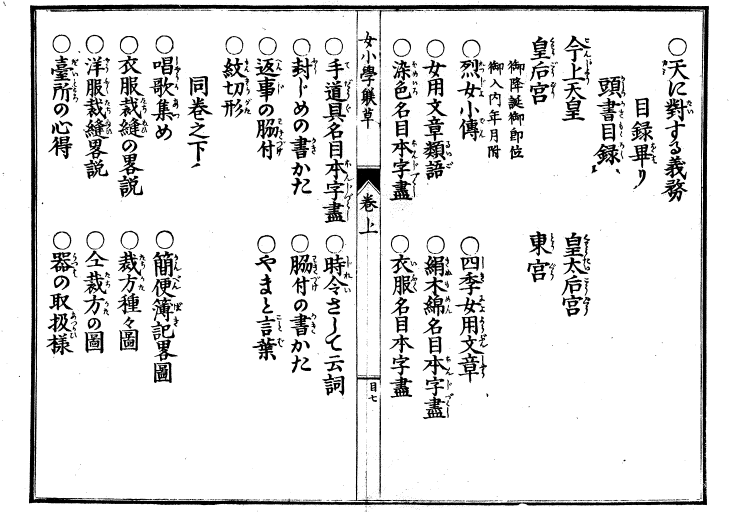 ○天に對する義務
目録畢り
頭書目録
今上天皇
皇太后宮
皇后宮
東宮
御降誕御即位
御入内年月附
○烈女小傳
○四季女用文章
○女用文章類語
○絹木綿名目本字盡
○染色名目本字盡
○衣服名目本字盡
女小學躾草
卷上
目七
○手道具名目本字盡
○時令さして云詞
○封じめの書かた
○脇付の書かた
○返事の脇付
○やまと言葉
○紋切形
同卷之下
○唱歌集め
○簡便簿記畧圖
○衣服裁縫の畧説
○裁方種々圖
○洋服裁縫畧説
○仝裁方の圖
○臺所の心得
○器の取扱様